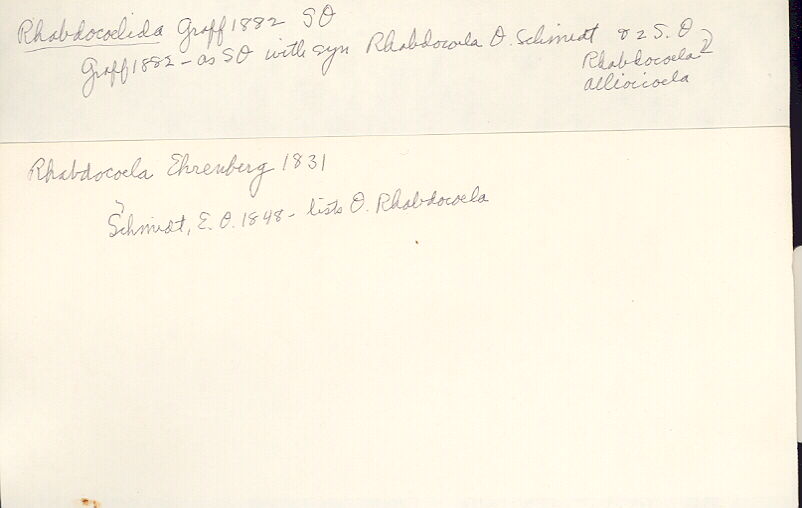 Rhabdocoelida Graff 1882 SO
Graff 1882 - as SO with syn Rhabdocoela O. Schmidt & 2 S. O
Rhabdocoela
alloiocoela
Rhabdocoela Ehrenberg 1831
Schmidt, E. O. 1848 - lists O. Rhabdocoela